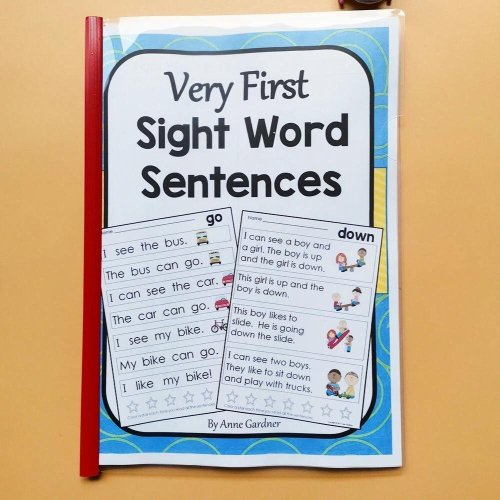 Very First
Sight Word
Sentences
go
I see the bus.
The bus can go.
I can see the car.
The car can go.
I see my bike.
My bike can go.
I like my bike!
Name
down
I can see a boy and
a girl. The boy is up
and the girl is down.
This girl is up and the
boy is down.
This boy likes to
slide. He is going
down the slide.
I can see two boys.
They like to sit down
and play with trucks.
By Anne Gardner